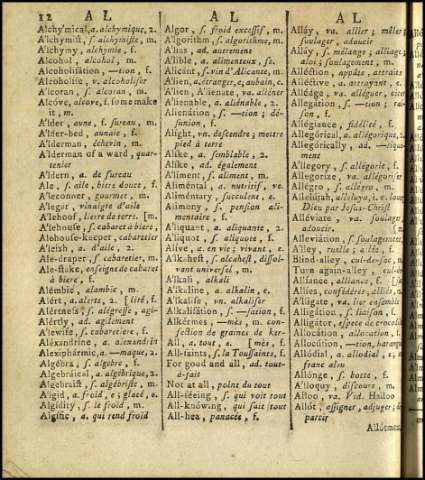 12 A L
Alchy'mical, a. alchymique, 2.
A'lchymist, s. alchymiste, m.
A'lchymy, alchymie, f.
A'lcohol, alcohol, m.
Alcoholisátion, —tion, f.
A'lcoholise, v. alcoholiser
A'lcoran, s. alcoran, m.
Alcóve, alcove, f. some make
it, m.
A'lder, aune, f. sureau, m.
A'lder-bed, aunaie, f.
A'lderman, échevin, m.
A'lderman of a ward, quar-
tenier
A'ldern, a. de sureau
Ale, s. aile, bière douce, f.
A'leconner, gourmet, m.
A'legar, vinaigre d'aile
A'lehoof, lierre de terre. [m.
A'lehouse, s. cabaret à bière,
A'lehouse-keeper, cabaretier
A'leish, a. d'aile, 2.
Ale-draper, s. cabaretier, m.
Ale-stake, enseigne de cabaret
à bière, f.
Alémbic, alambic, m.
Alért, a. alerte, 2. [lité, f.
Alértness, s. alégresse, agi-
Alértly, ad. agilement
A'lewife, s. cabaretière, f.
Alexándrine, a. alexandrin
Alexiphármic, a. —maque, 2.
Algebra, s. algebre, f.
Algebráical, a. algébrique, 2.
Algebráist, s. algébriste, m.
A'lgid, a. froid, e; glacé, e.
Algídity, s. le froid, m.
Algífic, a. qui rend froid
A L
Algor, s. froid excessif, m.
A'lgorithm, s. algorithme, m.
A'lias, ad. autrement
A'lible, a. alimenteux, se.
Alicánt, s. vin d'Alicante, m.
A'lien, a. étranger, e; aubain, e.
A'lien, A'lienate, va. aliéner
A'lienable, a. aliénable, 2.
Alienátion, s. —tion; dé-
sunion, f.
Alight, vn. descendre; mettre
pied à terre
Alike, a. semblable, 2.
Alike, ad. également
A'liment, s. aliment, m.
Aliméntal, a. nutritif, ve.
Aliméntary, succulent, e.
Alimony, s. pension ali-
mentaire, f.
A'liquant, a. aliquante, 2.
A'liquot, s. aliquote, f.
Alive, a. en vie; vivant, e.
A'lkahest, s. alcahest, dissol-
vant universel, m.
A'lkali, alkali
A'lkaline, a. alkalin, e.
A'lkalise, vn. alkaliser
Alkalisátion, s. —sation, f.
Alkérmes, —mès, m. con-
fection de graines de ker-
All, a. tout, e. [mès, f.
All-saints, s. la Toussaints, f.
For good and all, ad. tout-
à-fait
Not at all, point du tout
All-séeing, s. qui voit tout
All-knówing, qui sait tout
All-hea, panacée, f.
A L
Alláy, va. allier; mêler;
soulager, adoucir
Alláy, s. mélange; alliage;
aloi; soulagement, m.
Alléction, appâts, attraits
Alléctive, a. attrayant
Allédge, va. alléguer
Allegátion, s. —tion;
son, f.
Allégiance, fidélité, f.
Allegórical, a. allégorique, 2.
Allegórically, ad. —ique-
ment
A'llegory, s. allégorie, f.
A'llegorize, va. allégoriser
Allégro, s. allégro, m.
Allelújah, alleluya, f.
Dieu par Jesus-Christ
Alléviate, va. soulager,
adoucir.
Alleviátion, s. soulagement,
A'lley, ruelle; allée, f.
Blind-alley, cul-de-sac,
Turn again-alley, cul
Alliance, alliance,
Allíes, alliances,
Allies, confédérés, alliés,
A'lligate, va. lier ensemble
Alligátion, s. liaison, f.
A'lligator, espece de crocodile
Allocátion, allocation,
Allocútion, —tion, harangue
Allódial, a. allodial, e;
franc aleu
Allónge, s. botte, f.
A'lloquy, discours, m.
Alloo, va. Vid. Halloo
Allót, assigner, adjuger;
partir